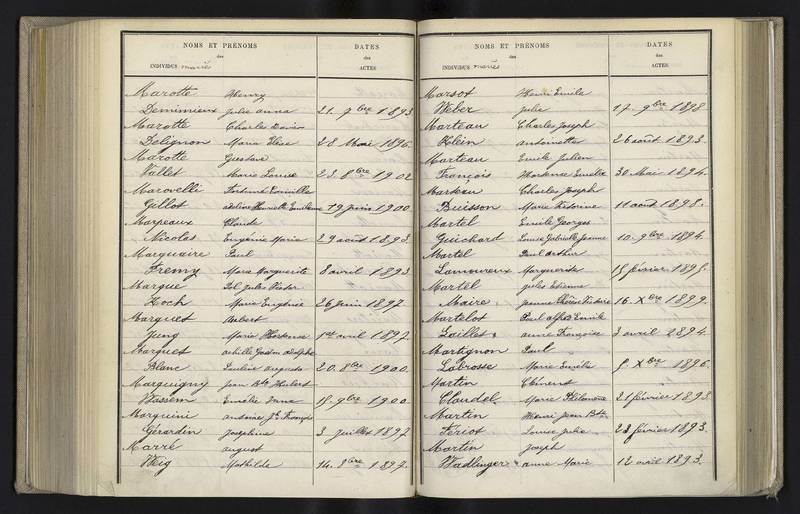 NOMS ET PRÉNOMS
des
INDIVIDUS mariés
DATES
des
ACTES
Marotte Henry
Demimieux Julie anna 21. 7bre 1893
Marotte Charles
Délignon Maria Elise 28 Mai 1896
Marotte Gustave
Vallet Marie Louise 23. 8bre 1902
Marovelli Fortuné
Gillot adeline Henriette 19 juin 1900
Marpeaux Claude
Nicolas Eugénie Marie 29 août 1893
Marquaire Paul
Fremy Marie Marguerite 8 avril 1893
Marque Pol Jules Victor
Koch Marie Eugénie 26 juin 1897
Marquet
Jung Marie Hortense 1er avril 1897
Marquet achille Gaston adolphe
Blanc Pauline augusta 20. 8bre 1900
Marquigny Jean Bte Hubert
Wassem Emélie Anna 15. 9bre 1900
Marquini antoine Jh François
Gérardin Joséphine 3 juillet 1897
Marré august
Weig Mathilda 14. 8bre 1897
NOMS ET PRÉNOMS
des
INDIVIDUS mariés
DATES
des
ACTES
Marsot Henri Emile
Weber Julie 17. 9bre 1898
Marteau Charles Joseph
Klein antoinette 26 août 1893.
Marteau Emile Julien
François Hortense Emélie 30 Mai 1894.
Marteau Charles Joseph
Buisson Marie Victorine 11 août 1898.
Martel Emile Georges
Guichard Louise Gabrielle Jeanne 10. 9bre 1894
Martel Paul Arthur
Lamoureux Marguerite 15 février 1895.
Martel Jules Etienne
Maire Jeanne 16. Xbre 1899.
Martelot Paul Emile
Laillet anne Françoise 3 avril 1894.
Martignon Paul
Labrosse Marie Emélie 5. Xbre 1896.
Martin Clément
Claudel Marie Philomène 21 février 1893
Martin Henri Jean Bte
Feriot Louise Julie 23 février 1893.
Martin Joseph
Wadlinger anne Marie 12 avril 1893.